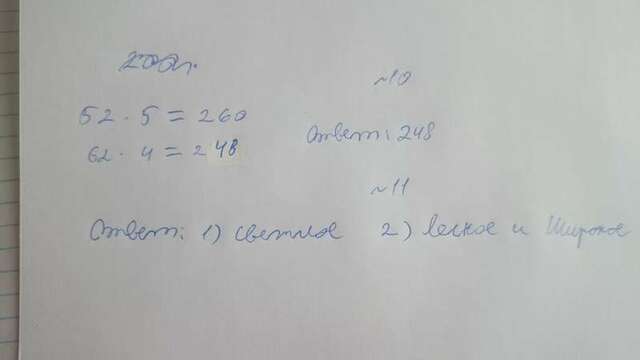 ~10
52 · 5 = 260
62 · 4 = 248
Ответ: 248
~11
Ответ: 1) светлое 2) лесное и Широкое